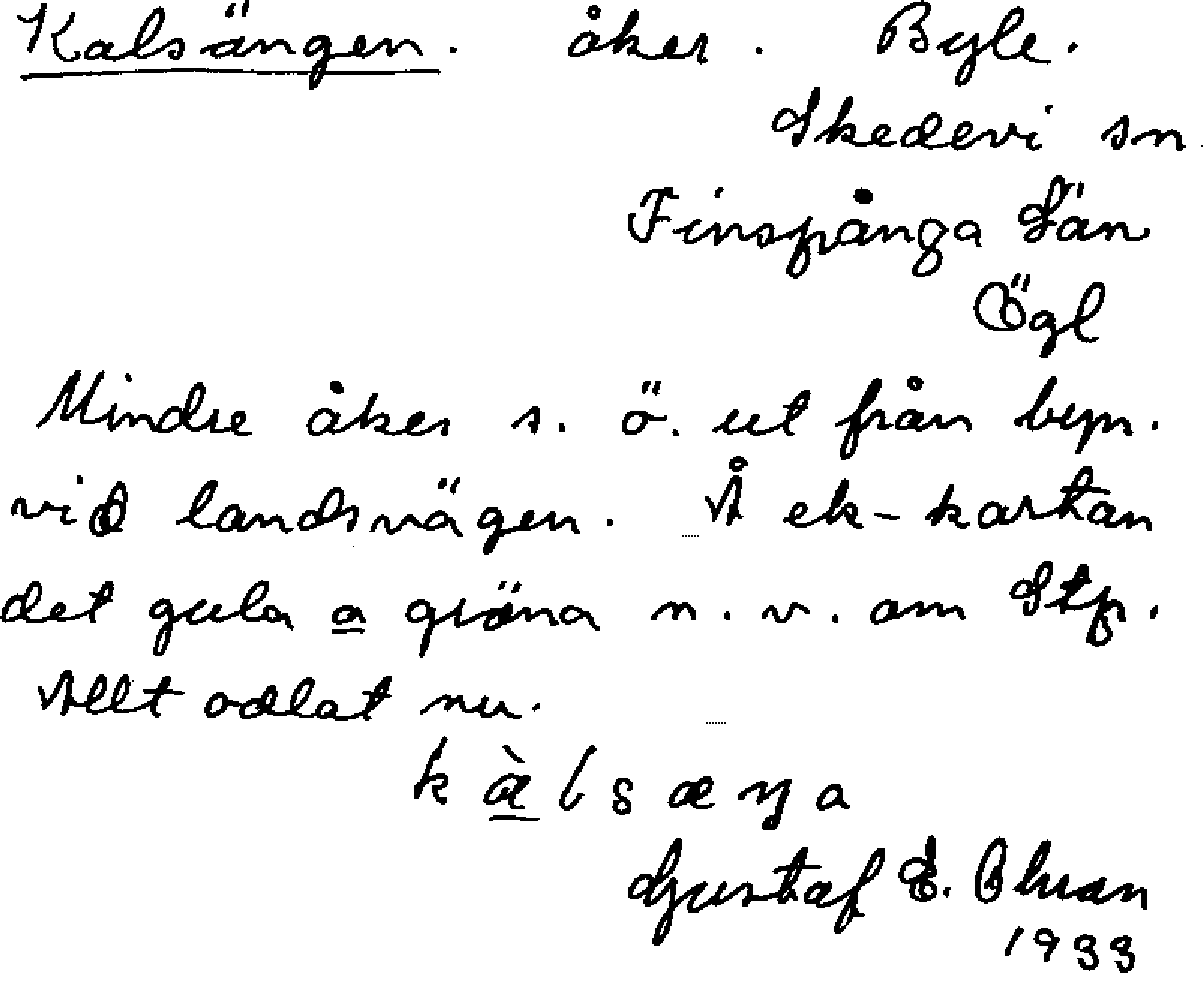 Kalsängen. åker. Byle.
Skedevi sn.
Finspånga Län
Ögl
Mindre åker s. ö. ut från byn.
vid landsvägen. Å ek-kartan
det gula a gröna n. v. om Stp.
Allt odlat nu.
Gustaf E.
1933